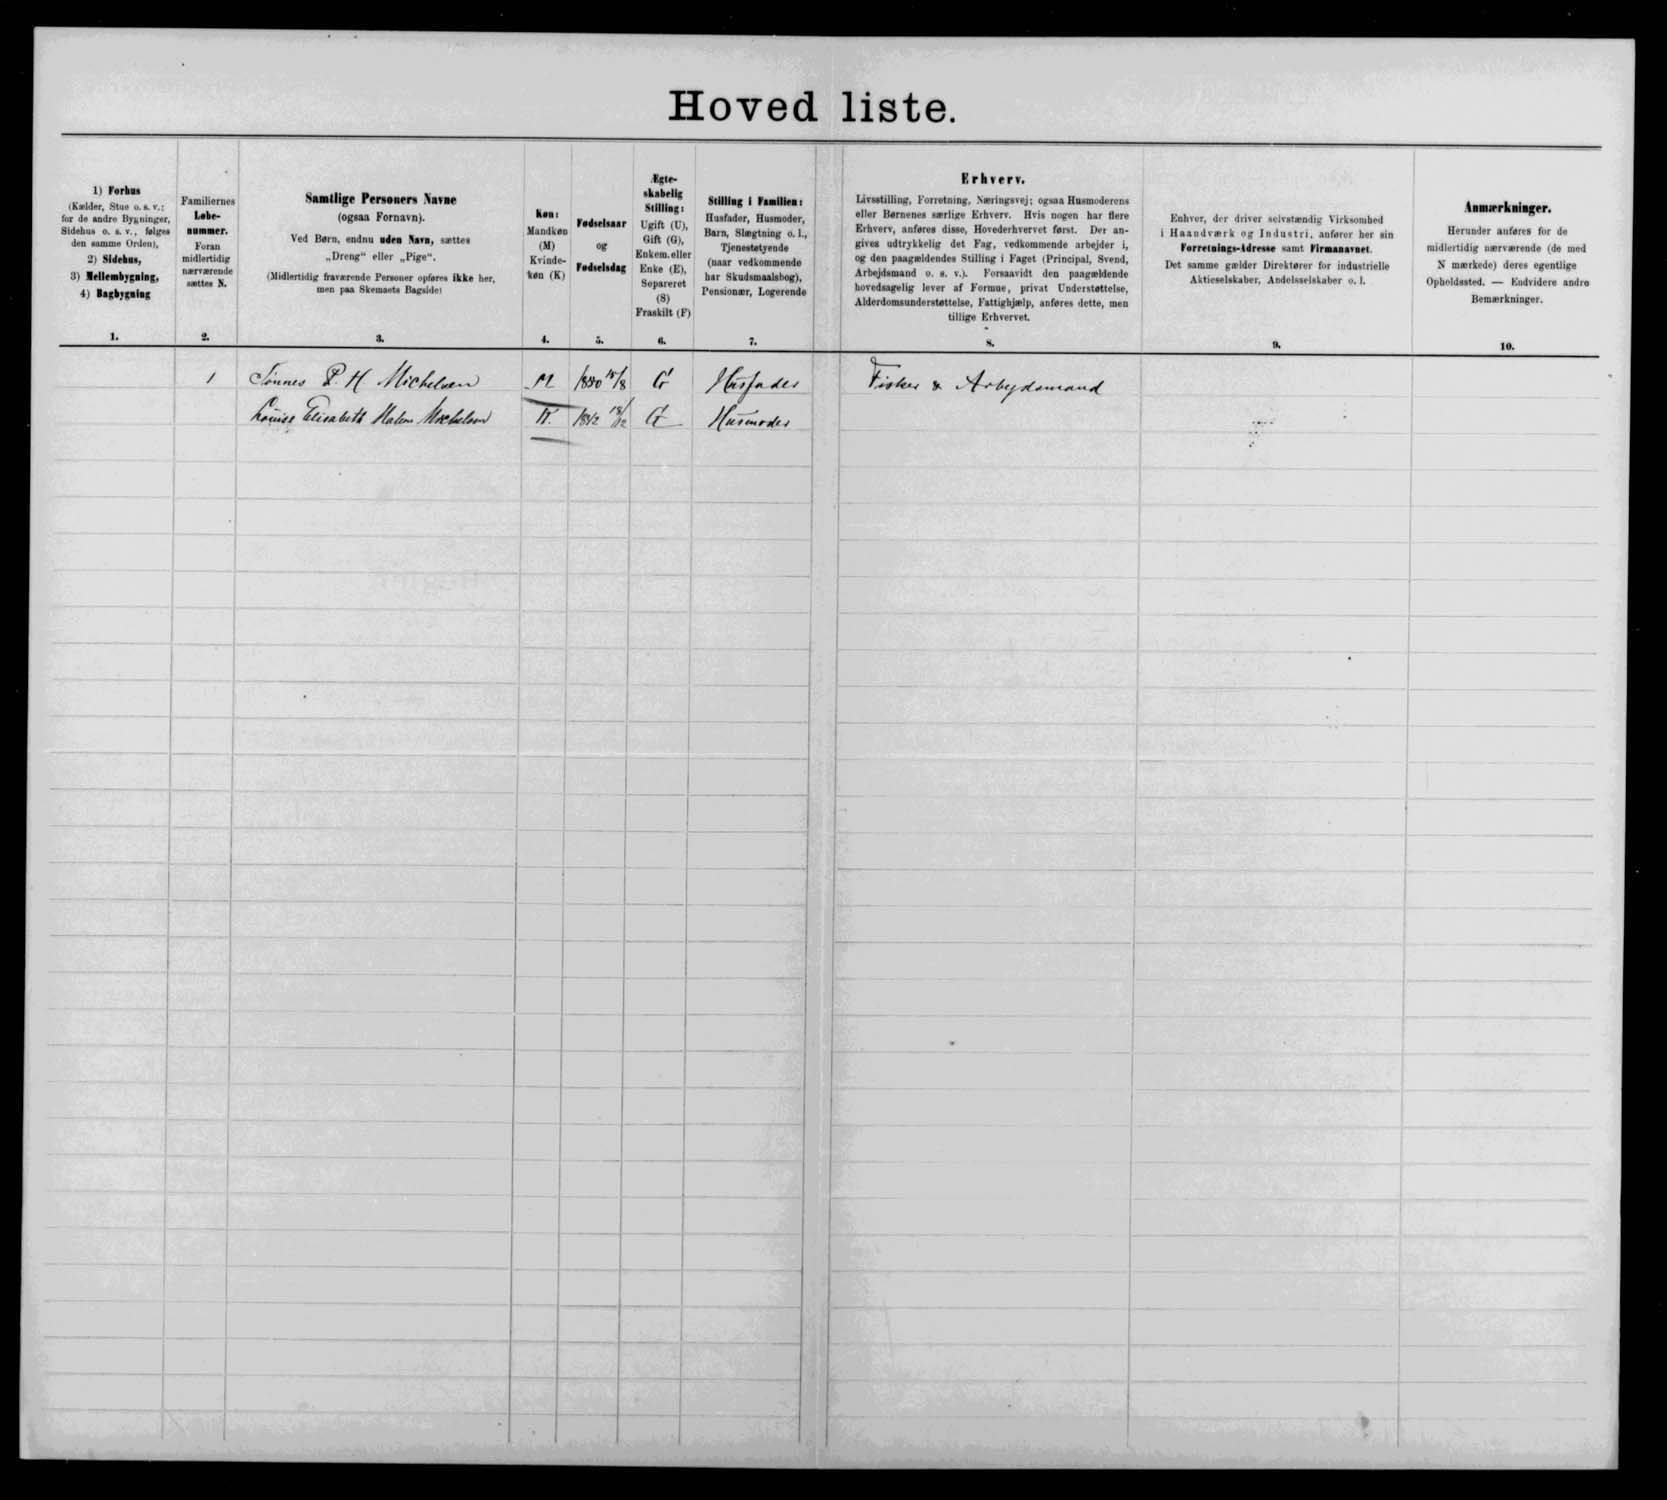 Hoved liste.
1) Forhus
(Kælder, Stue o. s. v.;
for de andre Bygninger,
Sidehus o. s. v., følges
den samme Orden),
2) Sidehus,
3) Mellembygning,
4) Bagbygning
1.
Familiernes
Løbe-
nummer.
Foran
midlertidig
nærværende
sættes N.
2.
Samtlige Personers Navne
(ogsaa Fornavn).
Ved Børn, endnu uden Navn, sættes
„Dreng“ eller „Pige“.
(Midlertidig fraværende Personer opføres ikke her,
men paa Skemaets Bagside)
3.
Køn:
Mandkøn
(M)
Kvinde-
køn (K)
4.
Fødselsaar
og
Fødselsdag
5.
Ægte-
skabelig
Stilling:
Ugift (U),
Gift (G),
Enkem. eller
Enke (E),
Separeret
(S)
Fraskilt (F)
6.
Stilling i Familien:
Husfader, Husmoder,
Barn, Slægtning o. l.,
Tjenestetyende
(naar vedkommende
har Skudsmaalsbog),
Pensionær, Logerende
7.
Erhverv.
Livsstilling, Forretning, Næringsvej; ogsaa Husmoderens
eller Børnenes særlige Erhverv. Hvis nogen har flere
Erhverv, anføres disse, Hovederhvervet først. Der an-
gives udtrykkelig det Fag, vedkommende arbejder i,
og den paagældendes Stilling i Faget (Principal, Svend,
Arbejdsmand o. s. v.). Forsaavidt den paagældende
hovedsagelig lever af Formue, privat Understøttelse,
Alderdomsunderstøttelse, Fattighjælp, anføres dette, men
tillige Erhvervet.
8.
Enhver, der driver selvstændig Virksomhed
i Haandværk og Industri, anfører her sin
Forretnings-Adresse samt Firmanavnet.
Det samme gælder Direktører for industrielle
Aktieselskaber, Andelsselskaber o. l.
9.
Anmærkninger.
Herunder anføres for de
midlertidig nærværende (de med
N mærkede) deres egentlige
Opholdssted. — Endvidere andre
Bemærkninger.
10.
1 Tønnes P. H Michelsen M 18/8 G Husfader Fisker & Arbydsmand
Louise Elisabeth Michelsen K. 1842 18/12 G Husmoder